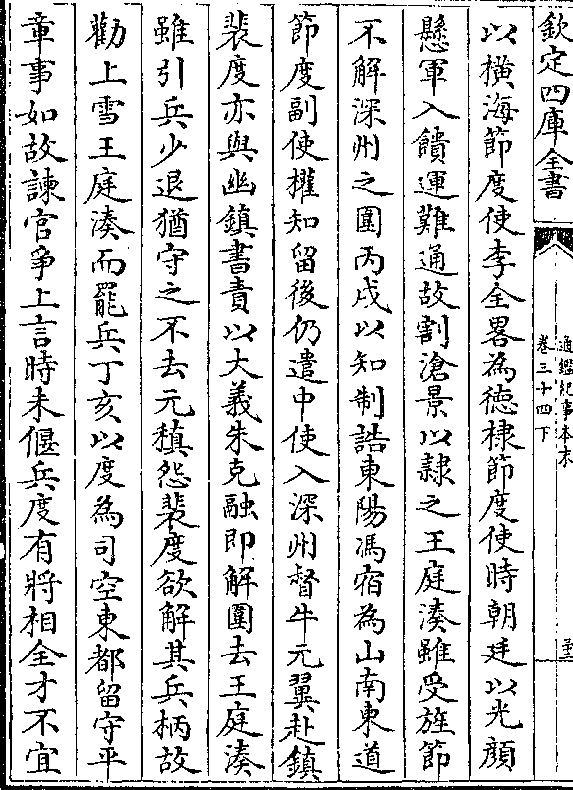 欽定四庫全書
通鑑紀事本末
卷三十四下
以横海節度使李全畧為徳棣節度使時朝廷以光顔
懸軍入饋運難通故割滄景以隸之王庭湊雖受旌節
不解深州之圍丙戌以知制誥東陽馮宿為山南東道
節度副使權知留後仍遣中使入深州督牛元翼赴鎮
裴度亦與幽鎮書責以大義朱克融即解圍去王庭湊
雖引兵少退猶守之不去元稹怨裴度欲解其兵柄故
勸上雪王庭湊而罷兵丁亥以度為司空東都留守平
章事如故諫官爭上言時未偃兵度有將相全才不宜